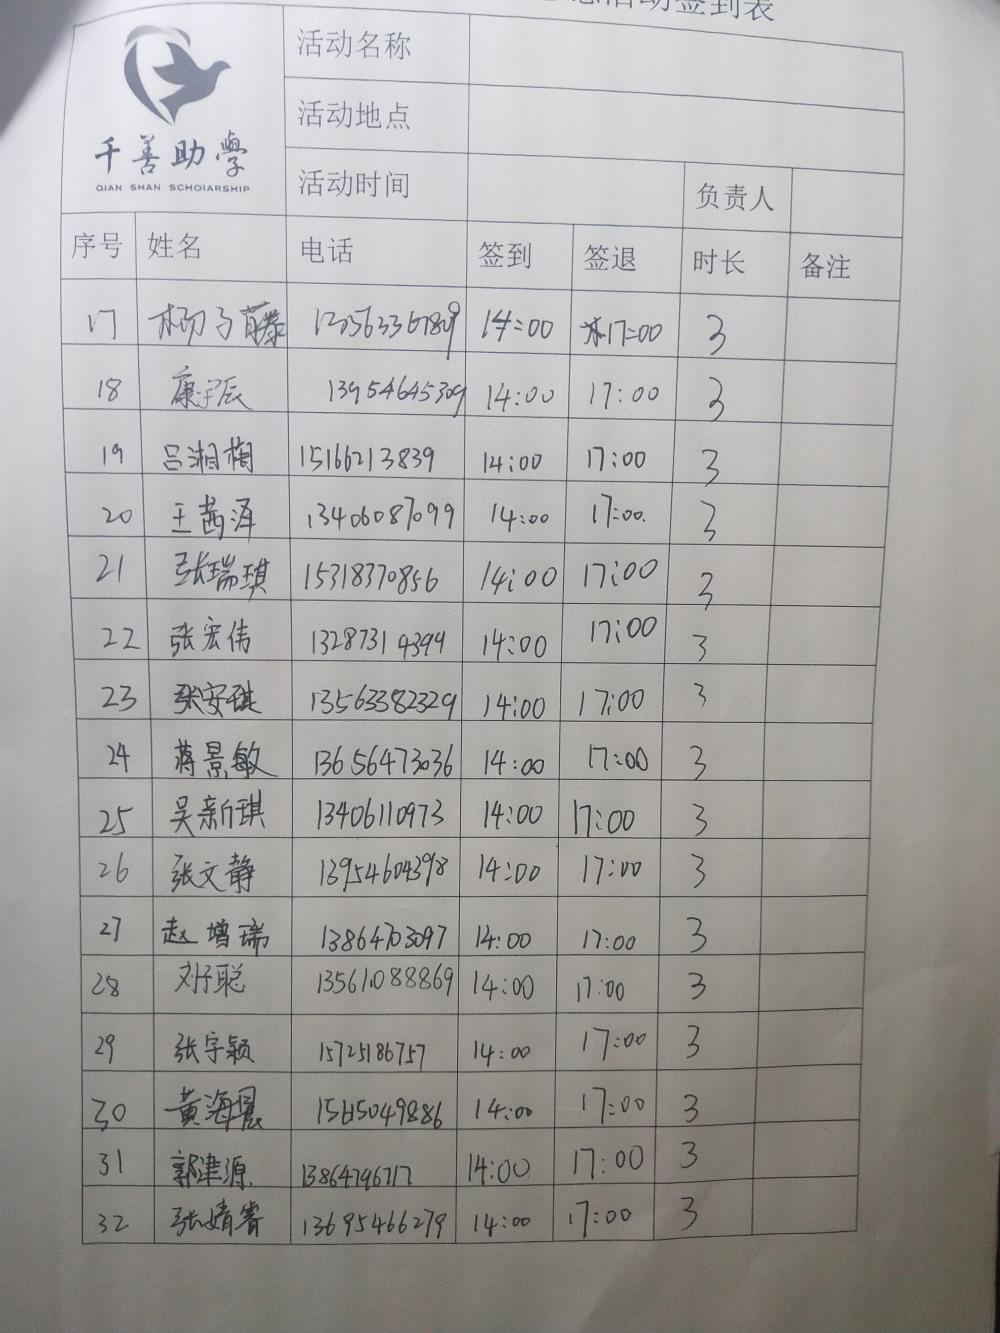 活动签到表
活动名称
活动地点
千善助学
QIAN SHAN SCHOIARSHIP
活动时间 负责人
序号 姓名 电话 签到 签退 时长 备注
17 杨子藤 14:00 17:00 3
18 康宇辰 13954645309 14:00 17:00 3
19 吕湘楠 15166213839 14:00 17:00 3
20 王茜泽 13406087099 14:00 17:00. 3
21 张瑞琪 15318370856 14:00 17:00 3
22 张宏伟 13287314394 14:00 17:00 3
23 张安琪 13563382329 14:00 17:00 3
24 蒋景敏 13656473036 14:00 17:00 3
25 吴新琪 13406110973 14:00 17:00 3
26 张文静 13954604398 14:00 17:00 3
27 赵增瑞 13864703097 14:00 17:00 3
28 刘子聪 13561088869 14:00 17:00 3
29 张宇颖 15725186757 14:00 17:00 3
30 黄海晨 15615049886 14:00 17:00 3
31 郭津源 13864796717 14:00 17:00 3
32 张婧睿 13695466279 14:00 17:00 3